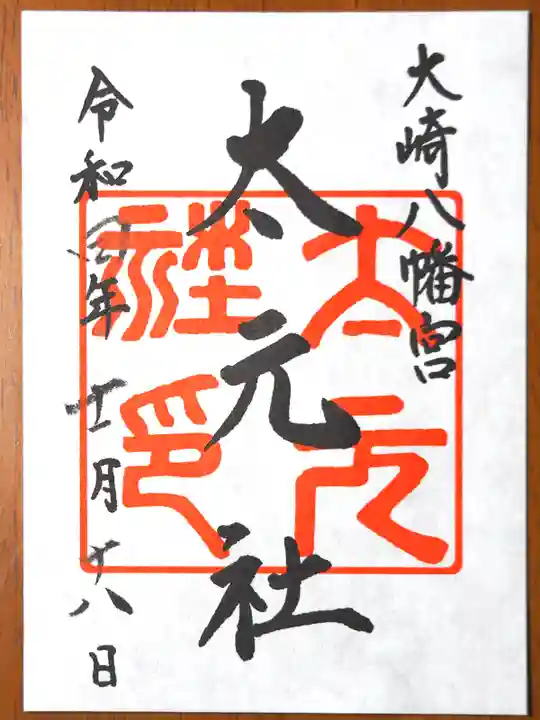 大崎八幡宮
太元社
令和四年 十一月十八日
太元社印